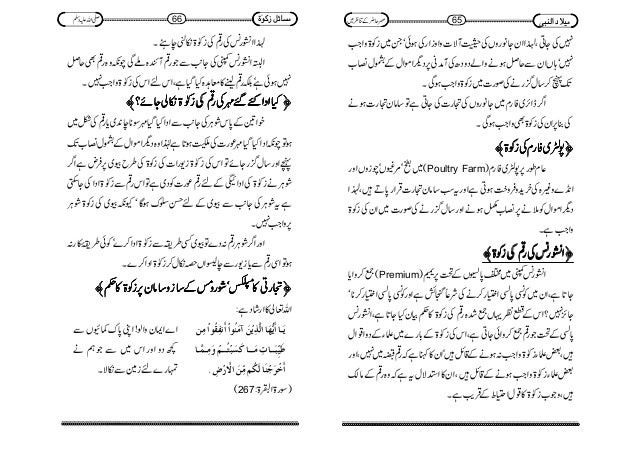 میلاد النبی
65
عصر حاضر کے تناظر میں
نہیں کی جاتی ، لہذا ان جانوروں کی حیثیت آلات و اوزار کی ہوئی ' جن میں زکوۃ واجب
نہیں ' ہاں ان سے حاصل ہونے والے دودھ کی آمدنی پر دیگر اموال کے بشمول نصاب
تک پہنچ کر سال گزرنے کی صورت میں زکوۃ واجب ہوگی۔
اگر ڈائری فارم میں جانوروں کی تجارت کی جاتی ہے تو سامان تجارت ہونے
کی بناء پر ان کی زکوۃ بھی واجب ہوگی۔
﴿ پولٹری فارم کی زکوۃ ﴾
عام طور پر پولٹری فارم (Poultry Farm) میں بطخ ' مرغیوں ' چوزوں اور
انڈے وغیرہ کی خرید و فروخت ہوتی ہے اور یہ سب سامان تجارت قرار پاتے ہیں ' لہذا
دیگر اموال کو ملانے پر نصاب مکمل ہونے اور سال گزرنے کی صورت میں ان کی زکوۃ
واجب ہے۔
﴿ انشورنس کی رقم کی زکوۃ ﴾
انشورنس کمپنی میں مختلف پالیسیوں کے تحت پریمیم (Premium) جمع کروایا
جاتا ہے ، ان میں کونسی پالسی اختیار کرنے کی شرعا گنجائش ہے اور کونسی پالسی اختیار کرنا '
جائز نہیں؟ اس کے قطع نظر یہاں جمع شدہ رقم کی زکوۃ کا حکم بیان کیا جاتا ہے ، انشورنس
پالسی کے تحت جو رقم جمع کروائی جاتی ہے ، اس کی زکوۃ کے بارے میں علماء کے دو اقوال
ہیں ، بعض علماء زکوۃ واجب نہ ہونے کے قائل ہیں ' ان کا کہنا ہے کہ رقم قبضہ میں نہیں ، اور
بعض علماء زکوۃ واجب ہونے کے قائل ہیں ، ان کا استدلال یہ ہے کہ وہ رقم کے مالک
ہیں ، وجوب زکوۃ کا قول احتیاط کے قریب ہے۔
مسائل زکوۃ
66
صلی اللہ علیہ وسلم
لہذا انشورنس کی رقم کی زکوۃ نکالنی چاہئے ۔
البتہ انشورنس کمپنی کی جانب سے جو رقم آئندہ ملے گی چونکہ وہ رقم ابھی حاصل
نہیں ہوئی ہے ' بلکہ رقم لینے کا معاہدہ کیا گیا ہے ، اس لئے اس کی زکوۃ واجب نہیں ۔
﴿ کیا ادا کئے گئے مہر کی رقم کی زکوۃ نکالی جائے ؟ ﴾
خواتین کے پاس شوہر کی جانب سے ادا کیا گیا مہر سونا چاندی یا رقم کی شکل میں
ہو تو چونکہ ادا کیا گیا مہر عورت کی ملکیت ہوتا ہے لہذا وہ دیگر اموال کے بشمول نصاب تک
پہنچے اور سال گزر جائے تو اس کی زکوۃ زیورات کی زکوۃ کی طرح بیوی پر فرض ہے اگر
شوہر نے زکوۃ کی ادائیگی کے لئے رقم عورت کو دی ہے تو اس رقم سے زکوۃ ادا کی جاسکتی
ہے یہ شوہر کی جانب سے بیوی کے لئے حسن سلوک ہوگا ' کیونکہ بیوی کی زکوۃ شوہر
پر واجب نہیں۔
اور اگر شوہر رقم نہ دے تو بیوی کسی طریقہ سے زکوۃ ادا کرے ' کوئی طریقہ کار نہ
ہو تو اسی رقم سے یا زیور سے چالیسواں حصہ نکال کر زکوۃ ادا کرے۔
﴿ تجارتی کامپلکس ' شوروم کے ساز و سامان پر زکوۃ کا حکم ﴾
اللہ تعالی کا ارشاد ہے :
يَا أَيُّهَا الَّذِينَ آمَنُوا أَنْفِقُوا مِن اے ایمان والو! اپنی پاک کمائیوں سے
طَيِّبَاتِ مَا كَسَبْتُمْ وَمِمَّا کچھ دو اور اس میں سے جو ہم نے
أَخْرَجْنَا لَكُم مِّنَ الْأَرْضِ. تمہارے لئے زمین سے نکالا۔
(سورۃ البقرۃ:267)